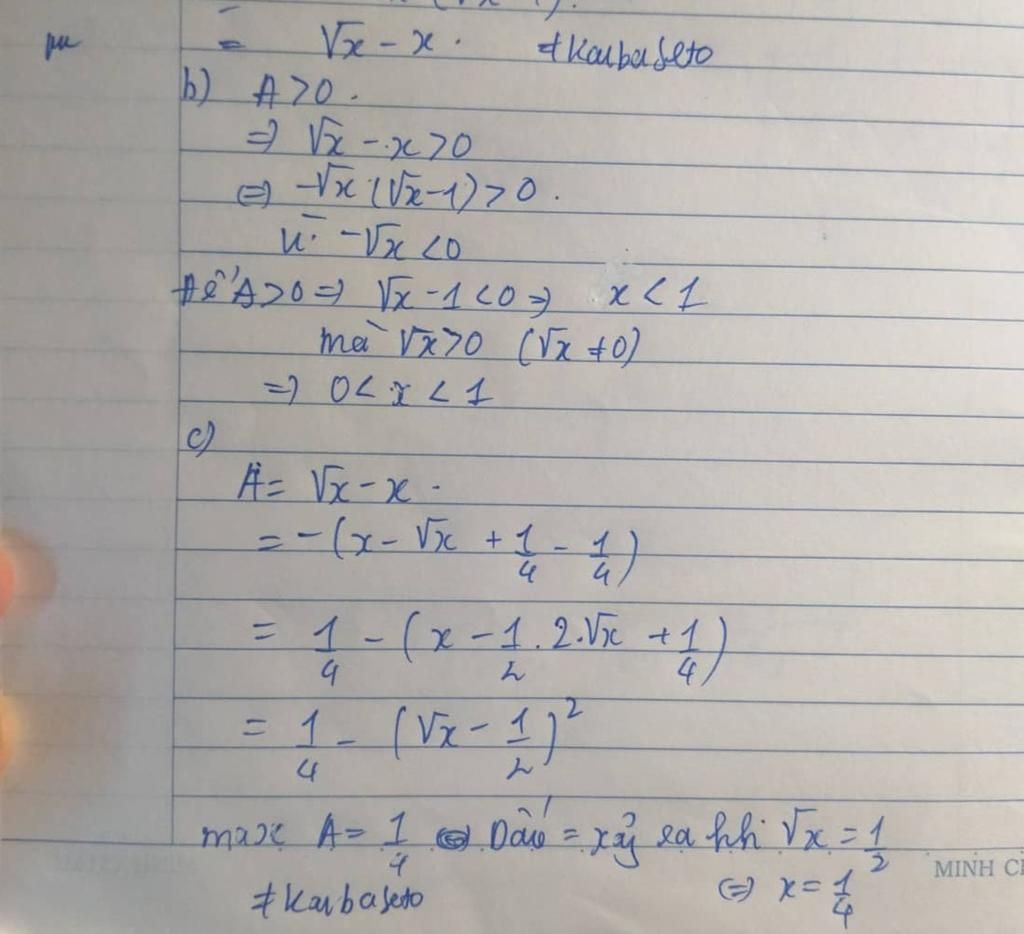 = √x - x. #Kaubaseto
b) A>0.
=> √x - x > 0
<=> -√x (√x-1) > 0.
vì -√x < 0
Để A>0 => √x - 1 < 0 => x < 1
mà √x > 0 (√x ≠ 0)
=> 0 < x < 1
c)
A = √x - x.
= -(x - √x + 1/4 - 1/4)
= 1/4 - (x - 1/2 . 2.√x + 1/4)
= 1/4 - (√x - 1/2)²
max A = 1/4 <=> Dấu = xảy ra khi √x = 1/2
<=> x = 1/4
#Kaubaseto